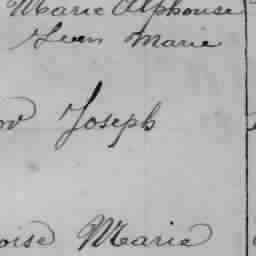 Marie Alphonse
Jean Marie
Joseph
Marie